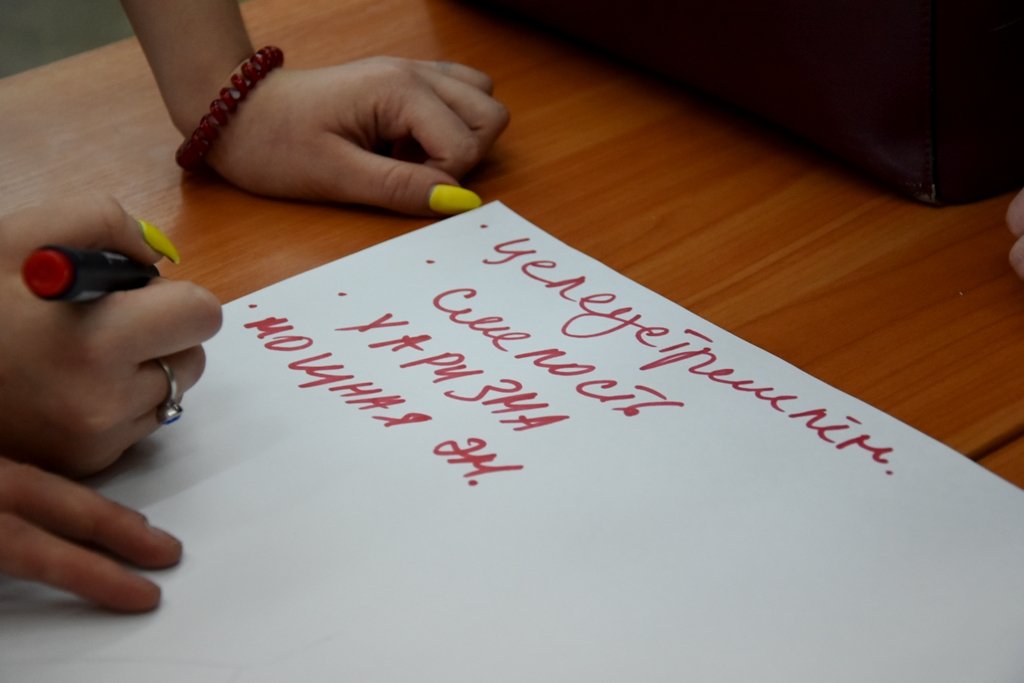 · целеустремлён.
· Смелость
· ХАРИЗМА
· МОЩНАЯ ЭН.